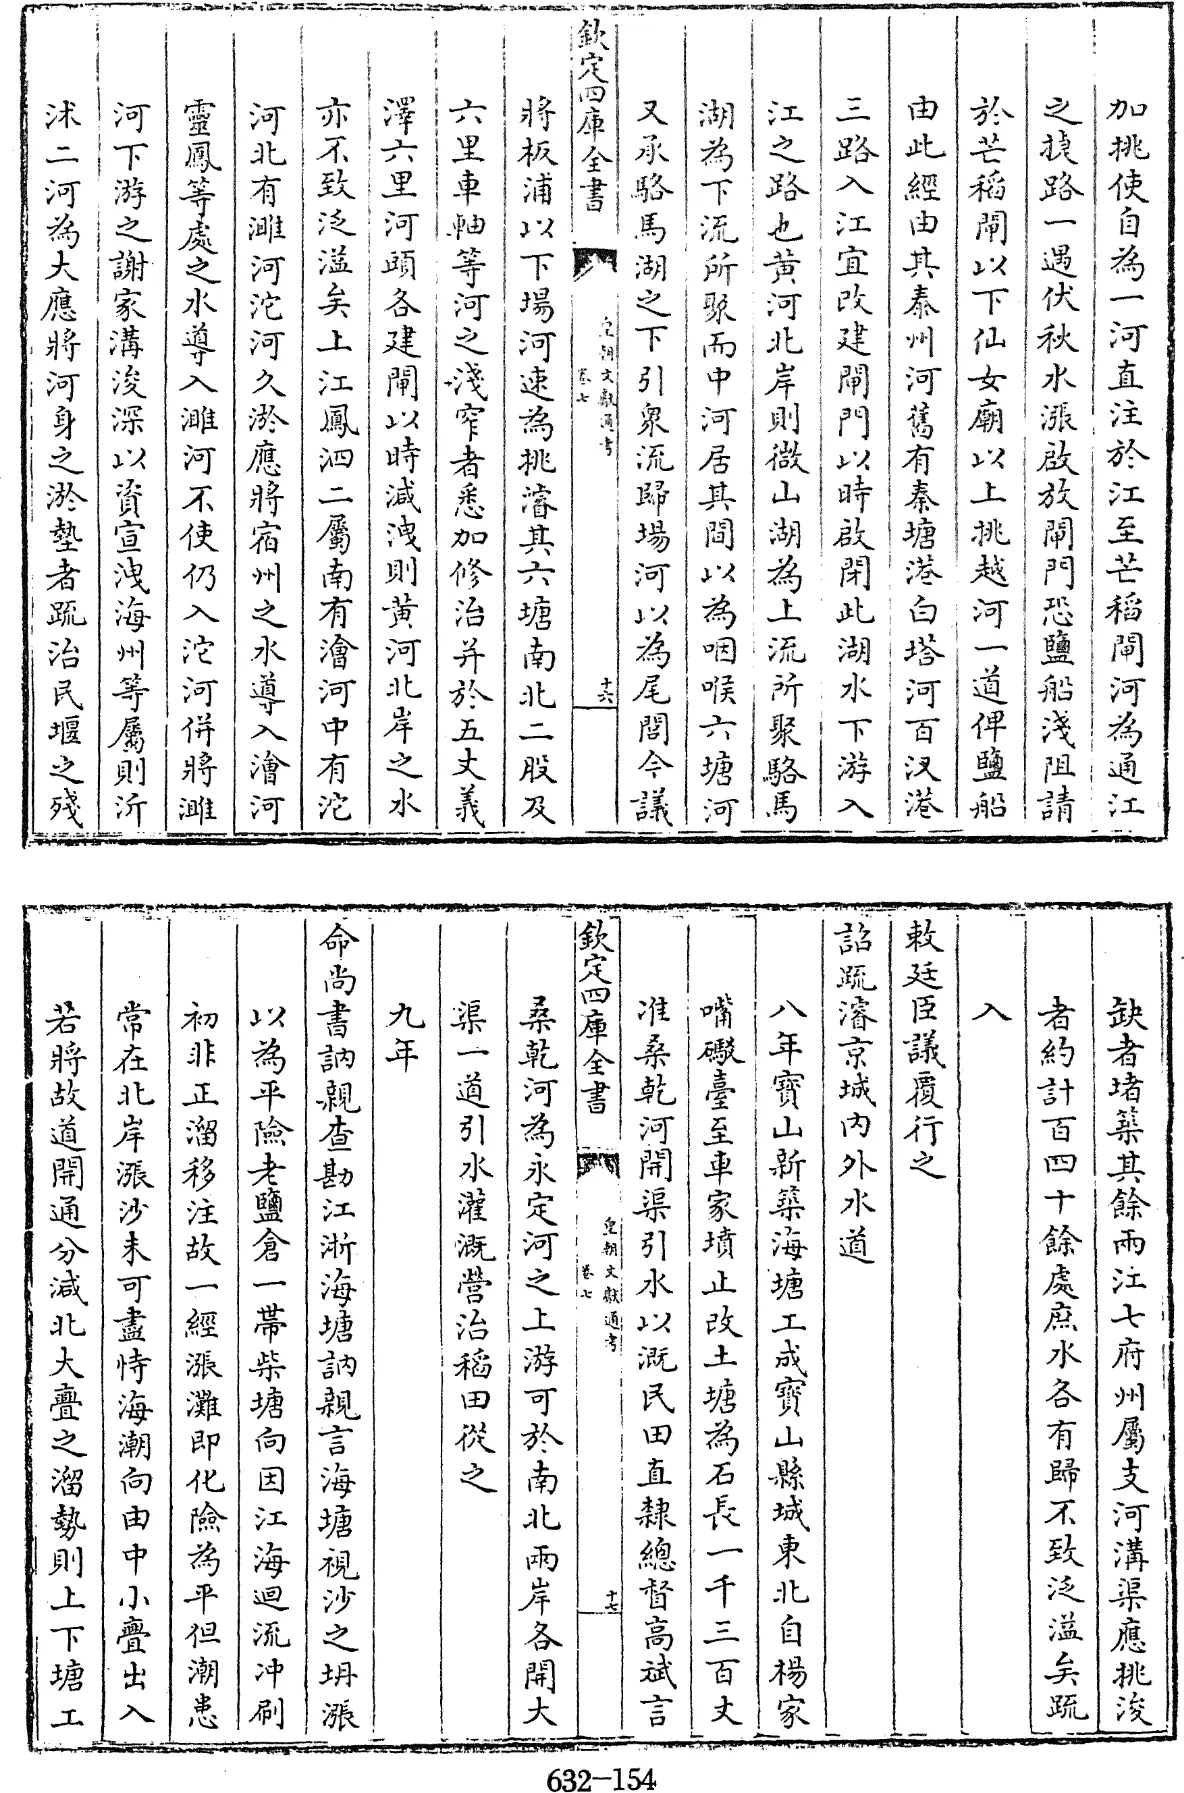 加挑使自為一河直注於江至芒稻閘河為通江
之捷路一遇伏秋水漲啟放閘門恐鹽船淺阻請
於芒稻閘以下仙女廟以上挑越河一道俾鹽船
由此經由其泰州河舊有秦塘港白塔河百汊港
三路入江宜改建閘門以時啟閉此湖水下游入
江之路也黄河北岸則微山湖為上流所聚駱馬
湖為下流所聚而中河居其間以為咽喉六塘河
又承駱馬湖之下引衆流歸塲河以為尾閭今議
欽定四庫全書
皇朝文獻通考
卷七
十六
將板浦以下塲河速為挑濬其六塘南北二股及
六里車軸等河之淺窄者悉加修治并於五丈義
澤六里河頭各建閘以時減洩則黄河北岸之水
亦不致泛溢矣上江鳳泗二屬南有澮河中有沱
河北有濉河沱河久淤應將宿州之水導入澮河
靈鳳等處之水導入濉河不使仍入沱河併將濉
河下游之謝家溝浚深以資宣洩海州等屬則沂
沭二河為大應將河身之淤墊者疏治民堰之殘
缺者堵築其餘兩江七府州屬支河溝渠應挑浚
者約計百四十餘處庶水各有歸不致泛溢矣疏
入
敕廷臣議覆行之
詔疏濬京城内外水道
八年寶山新築海塘工成寶山縣城東北自楊家
嘴礮臺至車家墳止改土塘為石長一千三百丈
准桑乾河開渠引水以溉民田直隸總督高斌言
欽定四庫全書
皇朝文獻通考
卷七
十七
桑乾河為永定河之上游可於南北兩岸各開大
渠一道引水灌溉營治稻田從之
九年
命尚書訥親查勘江浙海塘訥親言海塘視沙之坍漲
以為平險老鹽倉一帯柴塘向因江海迴流冲刷
初非正溜移注故一經漲灘即化險為平但潮患
常在北岸漲沙未可盡恃海潮向由中小亹出入
若將故道開通分減北大亹之溜勢則上下塘工
632-154